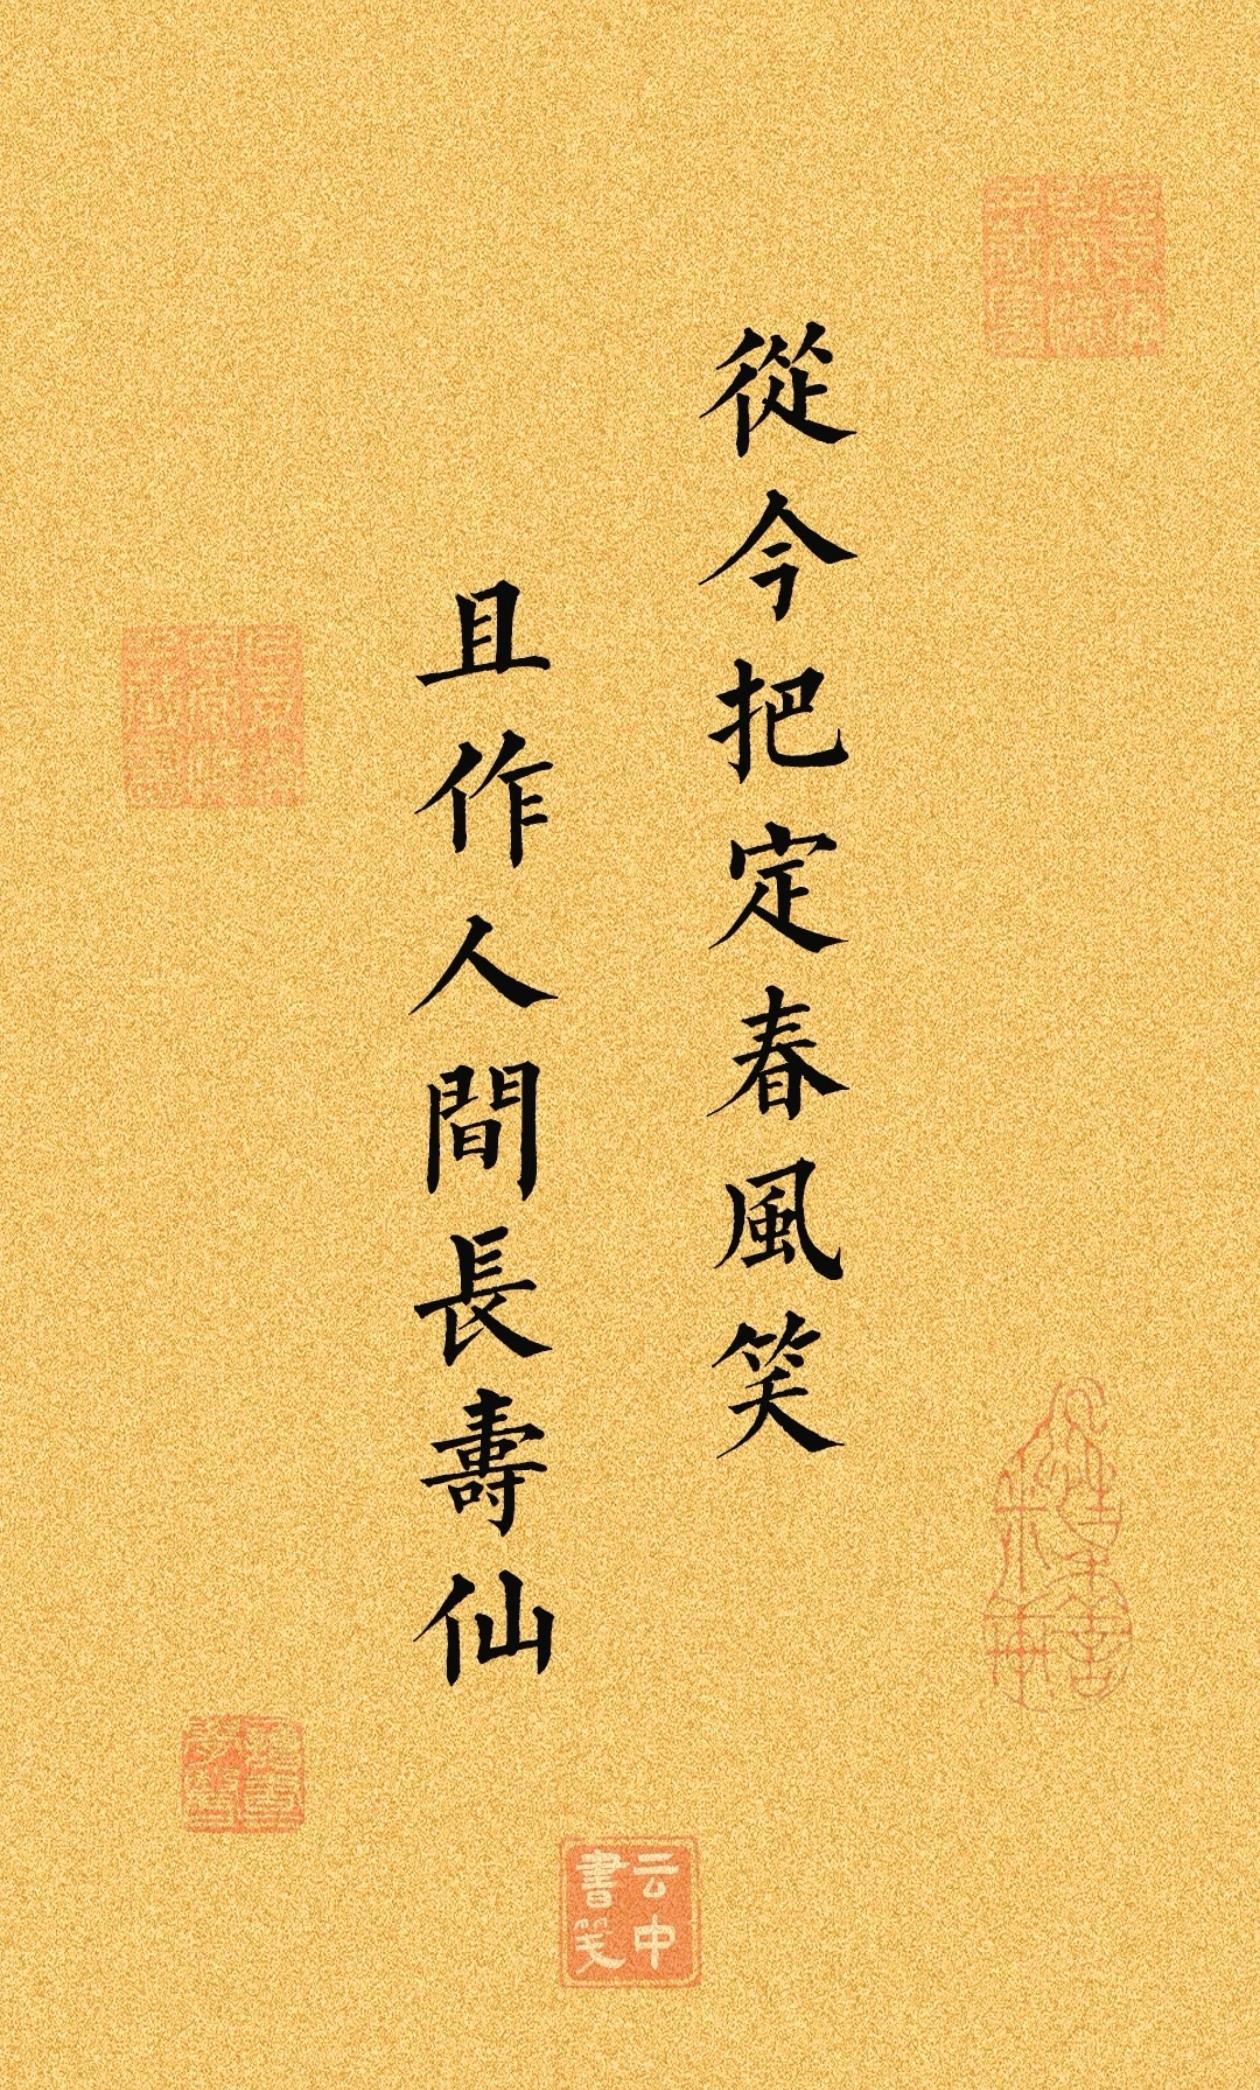 從今把定春風笑
且作人間長壽仙
云中
書笺